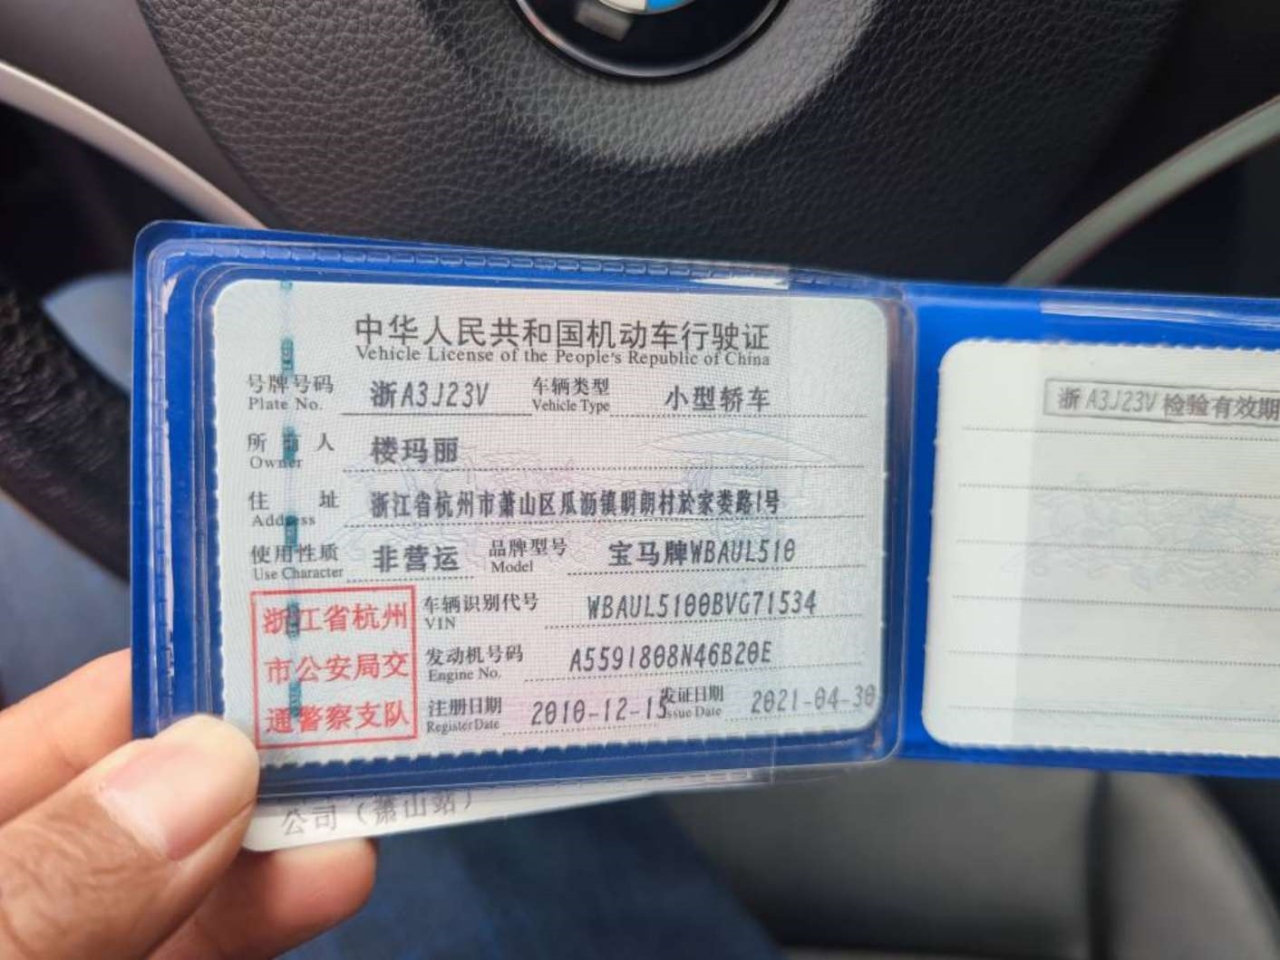 中华人民共和国机动车行驶证
Vehicle License of the People's Republic of China
号牌号码 浙A3J23V 车辆类型 小型轿车
Plate No. Vehicle Type
所有人 楼玛丽
Owner
住址 浙江省杭州市萧山区瓜沥镇明朗村於家娄路1号
Address
使用性质 非营运 品牌型号 宝马牌WBAUL510
Use Character Model
浙江省杭州
市公安局交
通警察支队
车辆识别代号 WBAUL5100BVG71534
VIN
发动机号码 A5591808N46B20E
Engine No.
注册日期 2010-12-15 发证日期 2021-04-30
Register Date Issue Date
公司（萧山站）
浙A3J23V 检验有效期